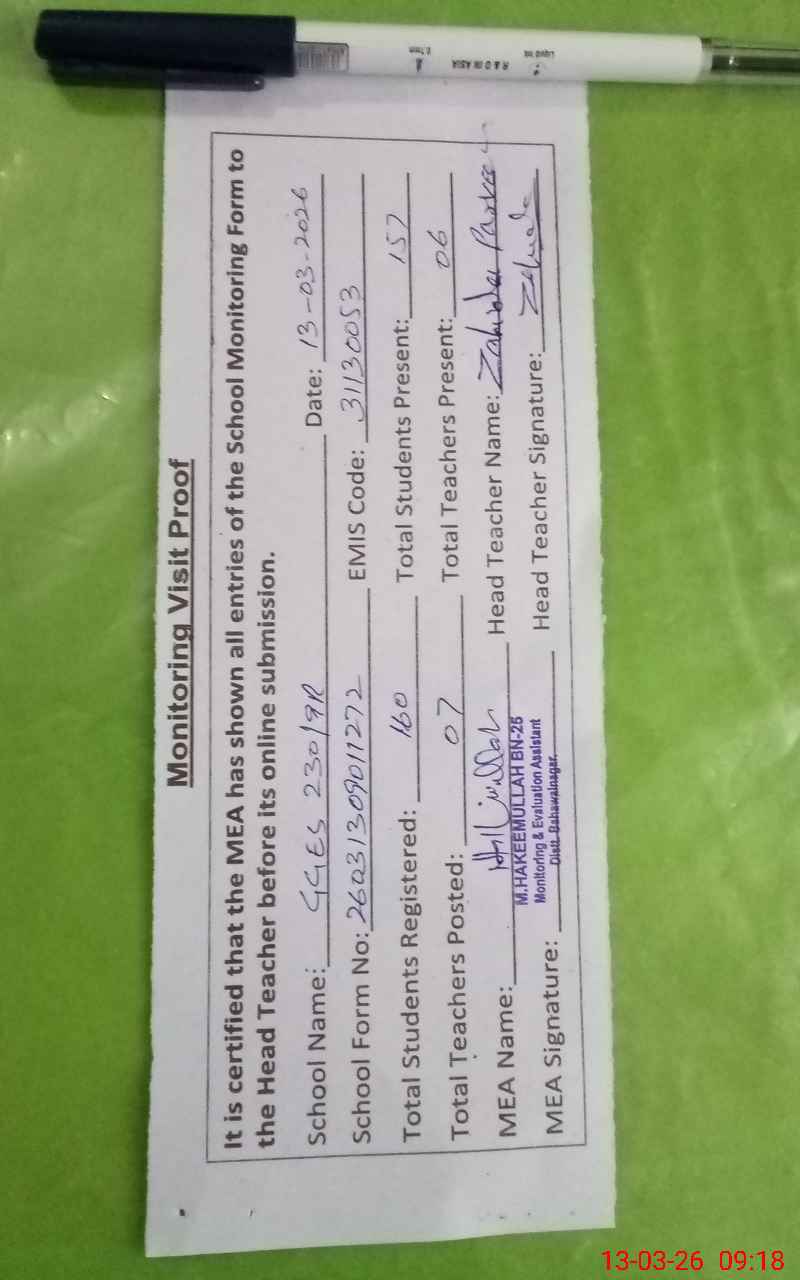 Monitoring Visit Proof
It is certified that the MEA has shown all entries of the School Monitoring Form to
the Head Teacher before its online submission.
School Name: GGES 230/9R Date: 13-03-2026
School Form No: 26031309011272 EMIS Code: 31130053
Total Students Registered: 160 Total Students Present: 157
Total Teachers Posted: 07 Total Teachers Present: 06
MEA Name: Head Teacher Name: Zahida Parveen
M.HAKEEMULLAH BN-25
Monitoring & Evaluation Assistant
Distt. Bahawalnagar.
MEA Signature: Head Teacher Signature: Zahida
Liquid Ink
R & D IN ASIA
0.7mm
13-03-26 09:18